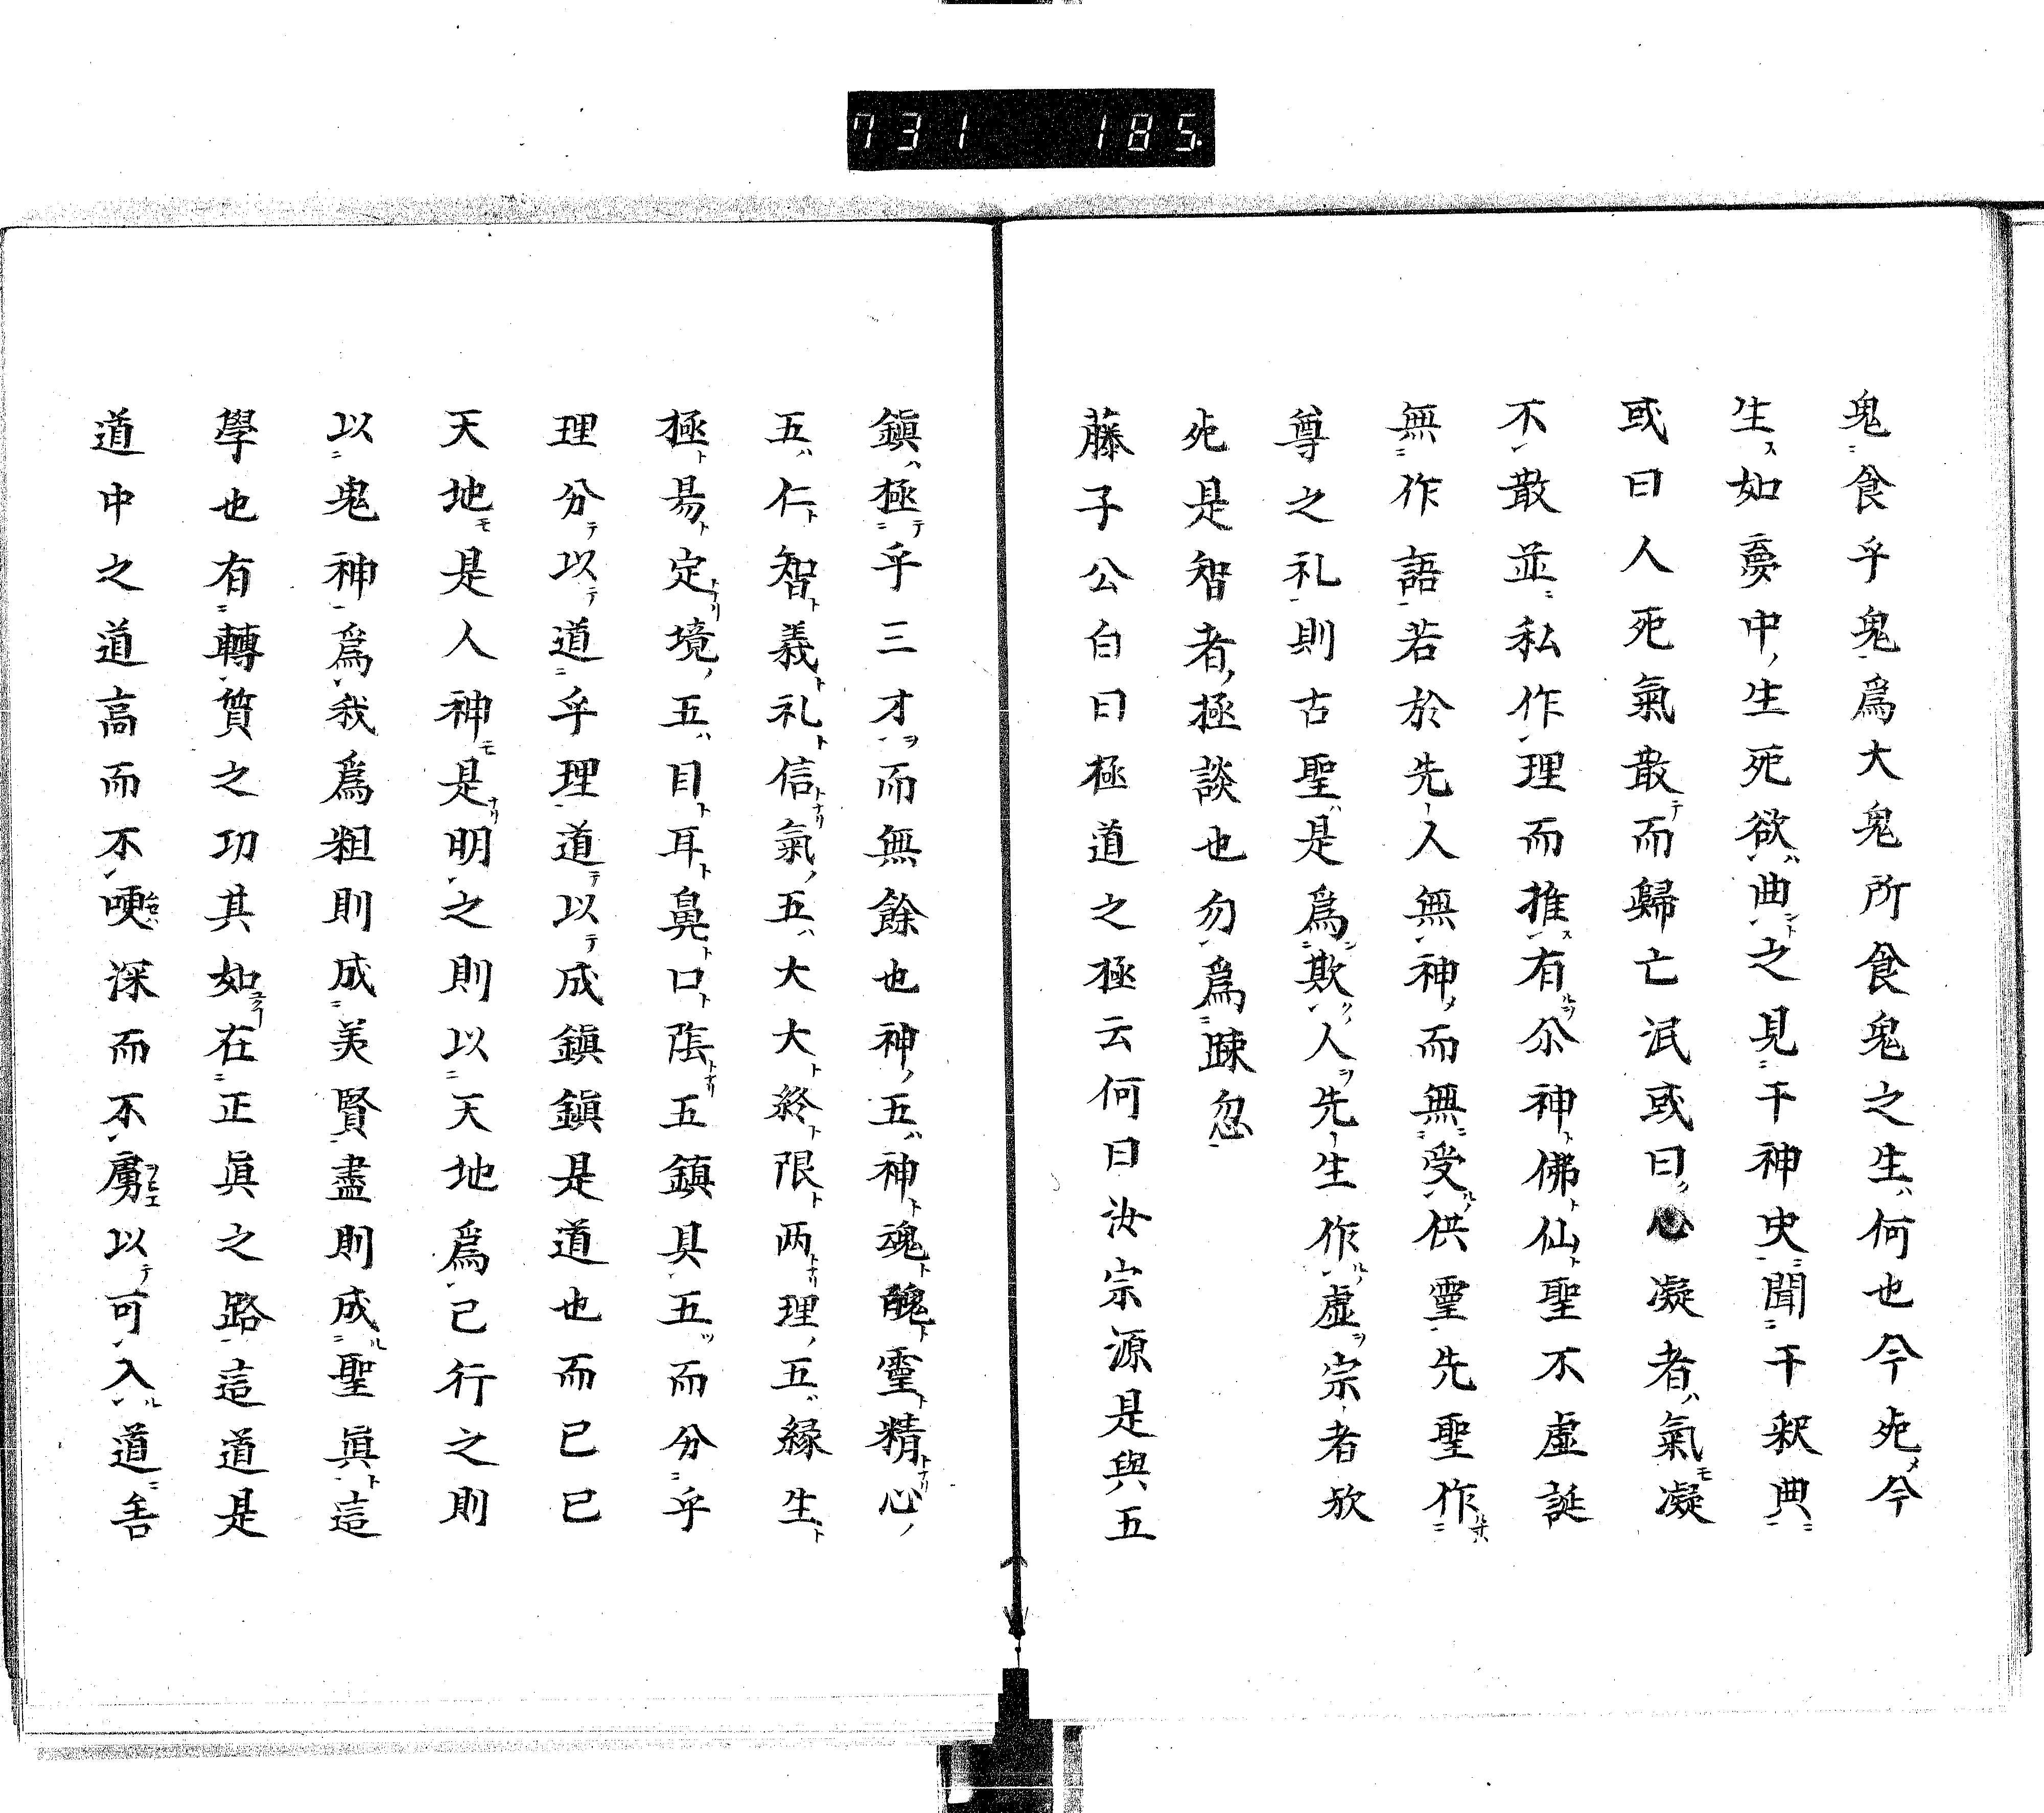 731 185.
鬼食乎鬼鬼爲大鬼所食鬼之生何也今死今
生如夢中生死欲曲之見干神史聞干釈典
或曰人死氣散而歸亡泯或曰心凝者氣凝
不散並私作理而推有尒神佛仙聖不虛誕
無作語若於先人無神而無受供霊先聖作
尊之礼則古聖是爲欺人先生作虛宗者欤
死是智者極談也勿爲踈忽
藤子公白曰極道之極云何曰汝宗源是與五
鎭極乎三才而無餘也神五神魂醜霊精心
五仁智義礼信氣五大大終限两理五縁生
極易定境五目耳鼻口陰五鎭具五而分乎
理分以道乎理道以成鎭鎭是道也而已已
天地是人神是明之則以天地爲己行之則
以鬼神爲我爲粗則成美賢盡則成聖眞這
學也有轉質之功其如在正眞之路這道是
道中之道高而不哽深而不以可入道吿